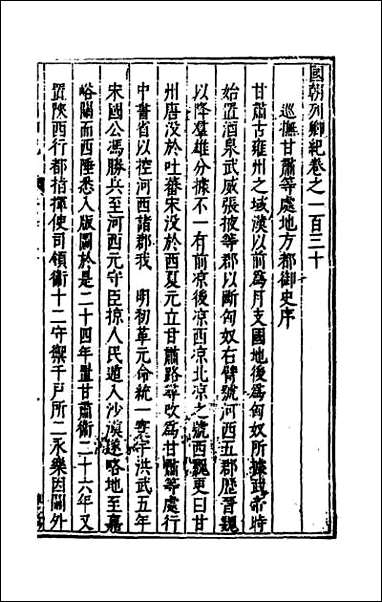 國朝列卿紀卷之一百三十
巡撫甘肅等處地方都御史序
甘肅古雍州之域漢以前為月支國地後為匈奴所據武帝時
始置酒泉武威張掖等郡以斷匈奴右臂號河西五郡歷晉魏
以降羣雄分據不一有前凉後凉西凉北凉之號西魏更曰甘
州唐没於吐蕃宋没於西夏元立甘肅路尋改為甘肅等處行
中書省以控河西諸郡我 明初革元命統一寰宇洪武五年
宋國公馮勝兵至河西元守臣掠人民遁入沙漠遂略地至嘉
峪關而西陲悉入版圖於是二十四年置甘肅衛二十六年又
置陝西行都指揮使司領衛十二守禦千戶所二永樂因關外